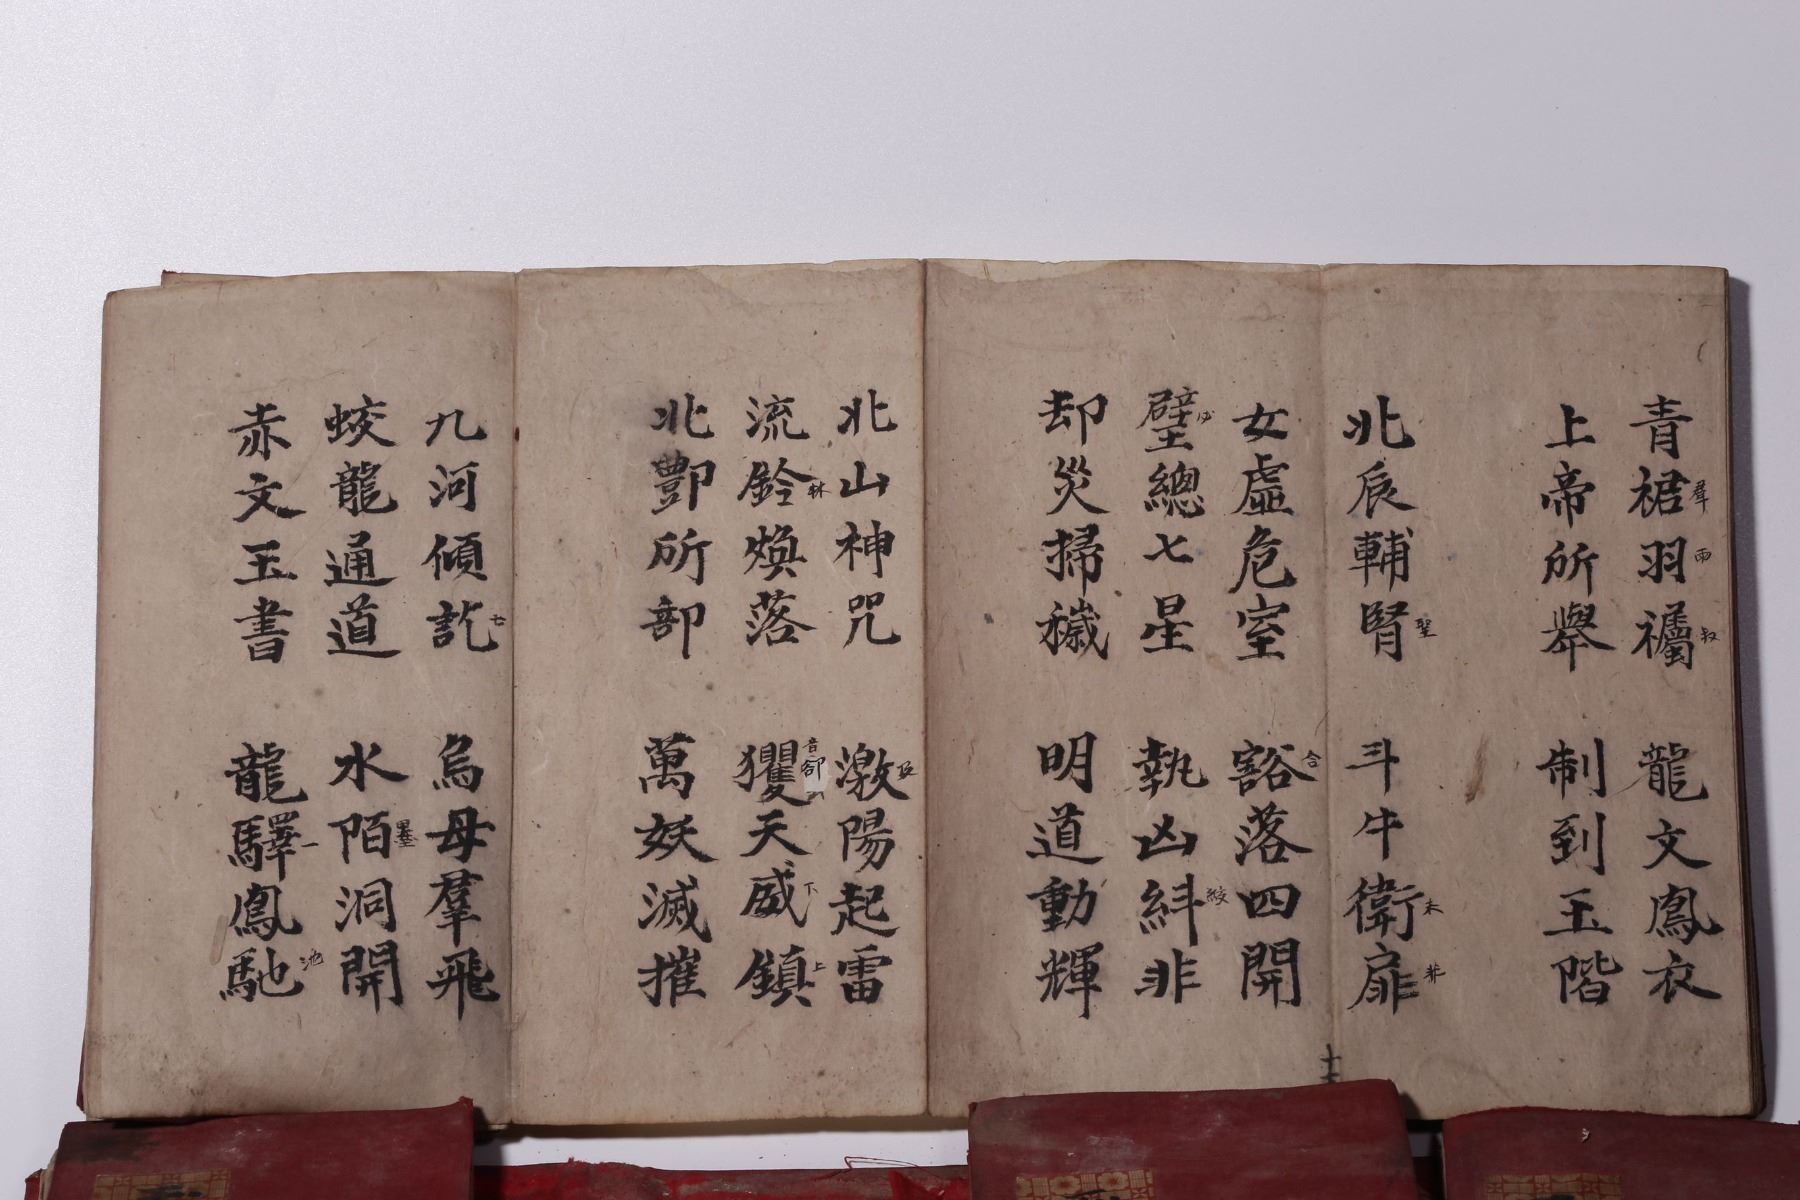 青裙羽襡　龍文鳳衣
群
雨
叔
上帝所舉　制到玉階
北辰輔腎　斗牛衛扉
聖
未
非
女虛危室　豁落四開
合
壁總七星　執凶糾非
絞
却災掃穢　明道動輝
十二
北山神咒　激陽起雷
流鈴煥落　玃天威鎮
林
音郤
下
上
北酆所部　萬妖滅摧
九河傾訖　烏母羣飛
七
蛟龍通道　水陌洞開
墨
赤文玉書　龍驛鳳馳
一
池